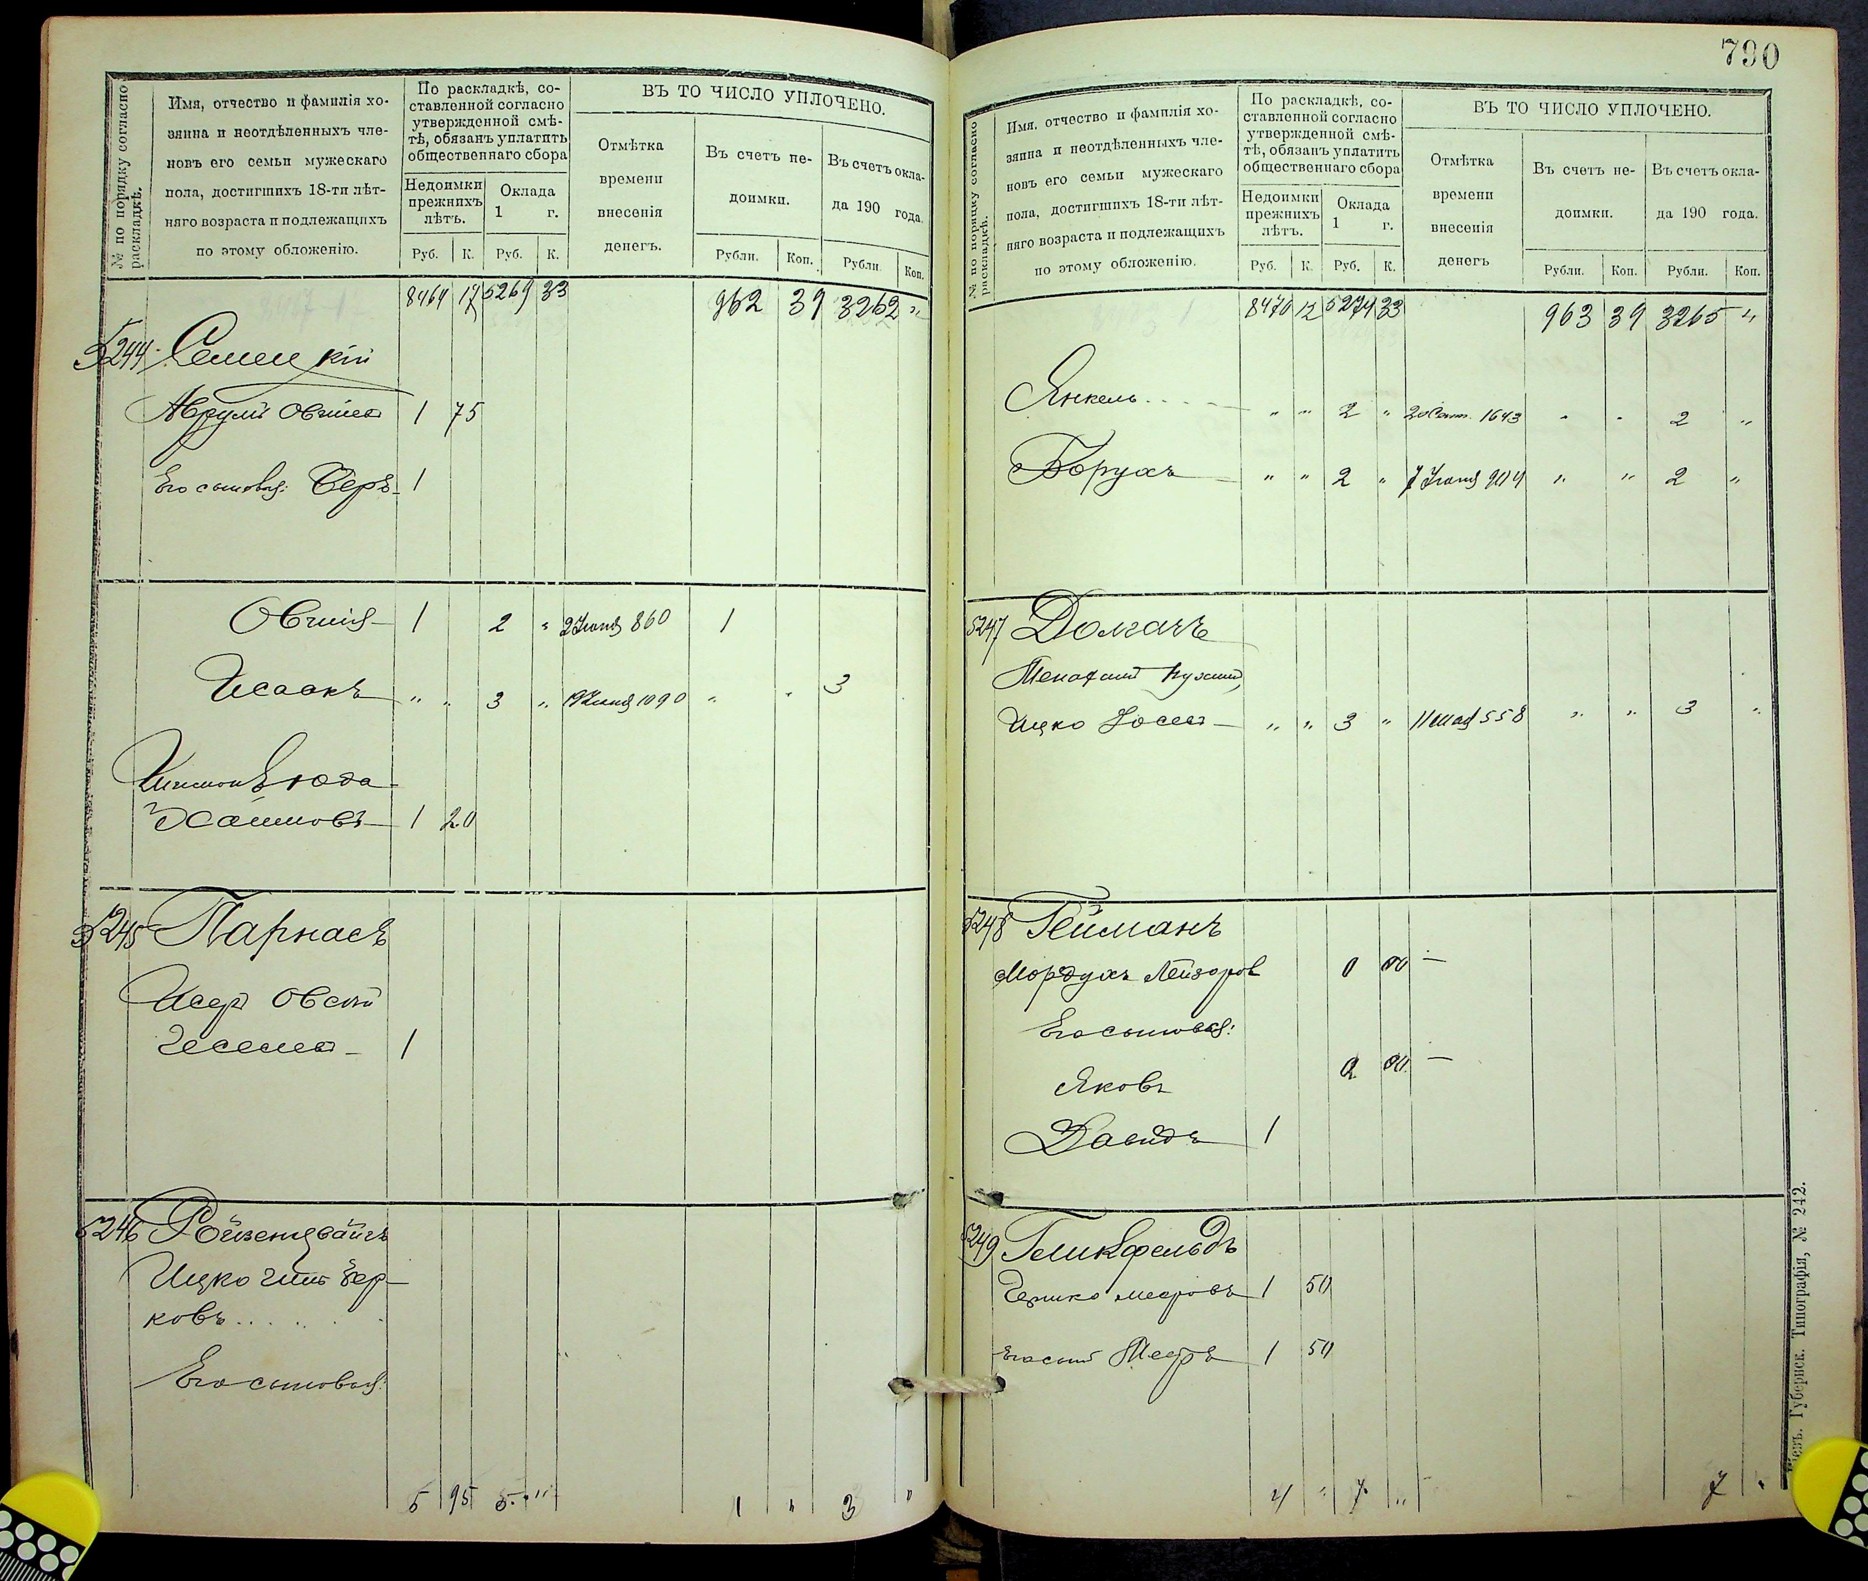 № по порядку согласно раскладкѣ.
Имя, отчество и фамилія хо-
зяина и неотдѣленныхъ чле-
новъ его семьи мужескаго
пола, достигшихъ 18-ти лѣт-
няго возраста и подлежащихъ
по этому обложенію.
По раскладкѣ, со-
ставленной согласно
утвержденной смѣ-
тѣ, обязанъ уплатить
общественнаго сбора
Недоимки
прежнихъ
лѣтъ.
Оклада
1 г.
Руб. К. Руб. К.
ВЪ ТО ЧИСЛО УПЛОЧЕНО.
Отмѣтка
времени
внесенія
денегъ.
Въ счетъ не-
доимки.
Въ счетъ окла-
да 190 года.
Рубли. Коп. Рубли. Коп.
8464 17 5269 33 962 39 3262 "
5244 Семецкій
Аврумъ Овшіев 1 75
Его сыновья: Беръ 1
Овшій 1 2 " 2 Іюня 860 1
Исаакъ " " 3 " 19 Іюня 1090 " " 3
Хаимовъ 1 20
5245 Парнасъ
Овсей
1
5246 Ройзенцвайгъ
Ицко Бер-
ковъ . . . . .
Его сыновья:
5 95 5 " 1 " 3 "
790
№ по порядку согласно раскладкѣ.
Имя, отчество и фамилія хо-
зяина и неотдѣленныхъ чле-
новъ его семьи мужескаго
пола, достигшихъ 18-ти лѣт-
няго возраста и подлежащихъ
по этому обложенію.
По раскладкѣ, со-
ставленной согласно
утвержденной смѣ-
тѣ, обязанъ уплатить
общественнаго сбора
Недоимки
прежнихъ
лѣтъ.
Оклада
1 г.
Руб. К. Руб. К.
ВЪ ТО ЧИСЛО УПЛОЧЕНО.
Отмѣтка
времени
внесенія
денегъ
Въ счетъ не-
доимки.
Въ счетъ окла-
да 190 года.
Рубли. Коп. Рубли. Коп.
8470 12 5274 33 963 39 3265 "
Янкель . . . . " " 2 " 20 Сент. 1643 " " 2 "
Борухъ " " 2 " 7 Іюня 904 " " 2 "
5247 Долгачъ
Ицко Іосев " " 3 " 11 Мая 558 " " 3 "
5248 Гейманъ
Мордухъ Лейзоров —
Его сыновья:
Яковъ —
Давидъ 1
5249 Геликфельдъ
Гершко Мееровъ 1 50
Его сынъ Мееръ 1 50
4 " 7 " 7 "
Губернск. Типографія, № 242.